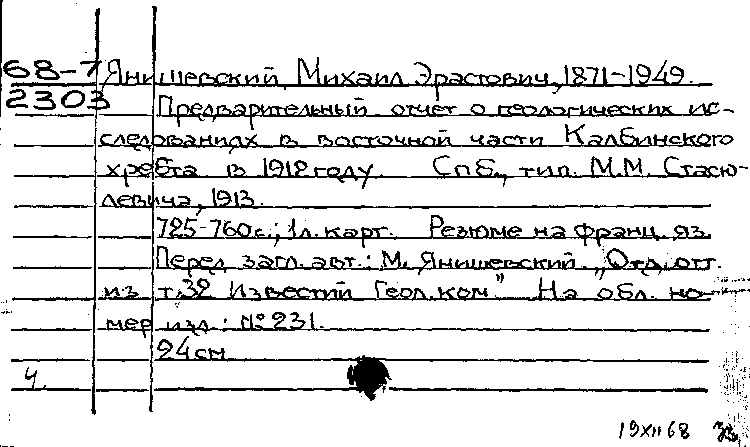 68-7 Янишевский, Михаил Эрастович, 1871-1949.
2303 Предварительный отчет о геологических ис-
следованиях в восточной части Калбинского
хребта в 1912 году. Спб., тип. М.М. Стасю-
левича, 1913.
725-760 с.; 1 л. карт. Резюме на франц. яз.
Перед загл. авт.: М. Янишевский. „Отд. отт.
из т. 32 Известий Геол. ком." На обл. но-
мер изд.: № 231.
24 см
Ч.
19 XII 68